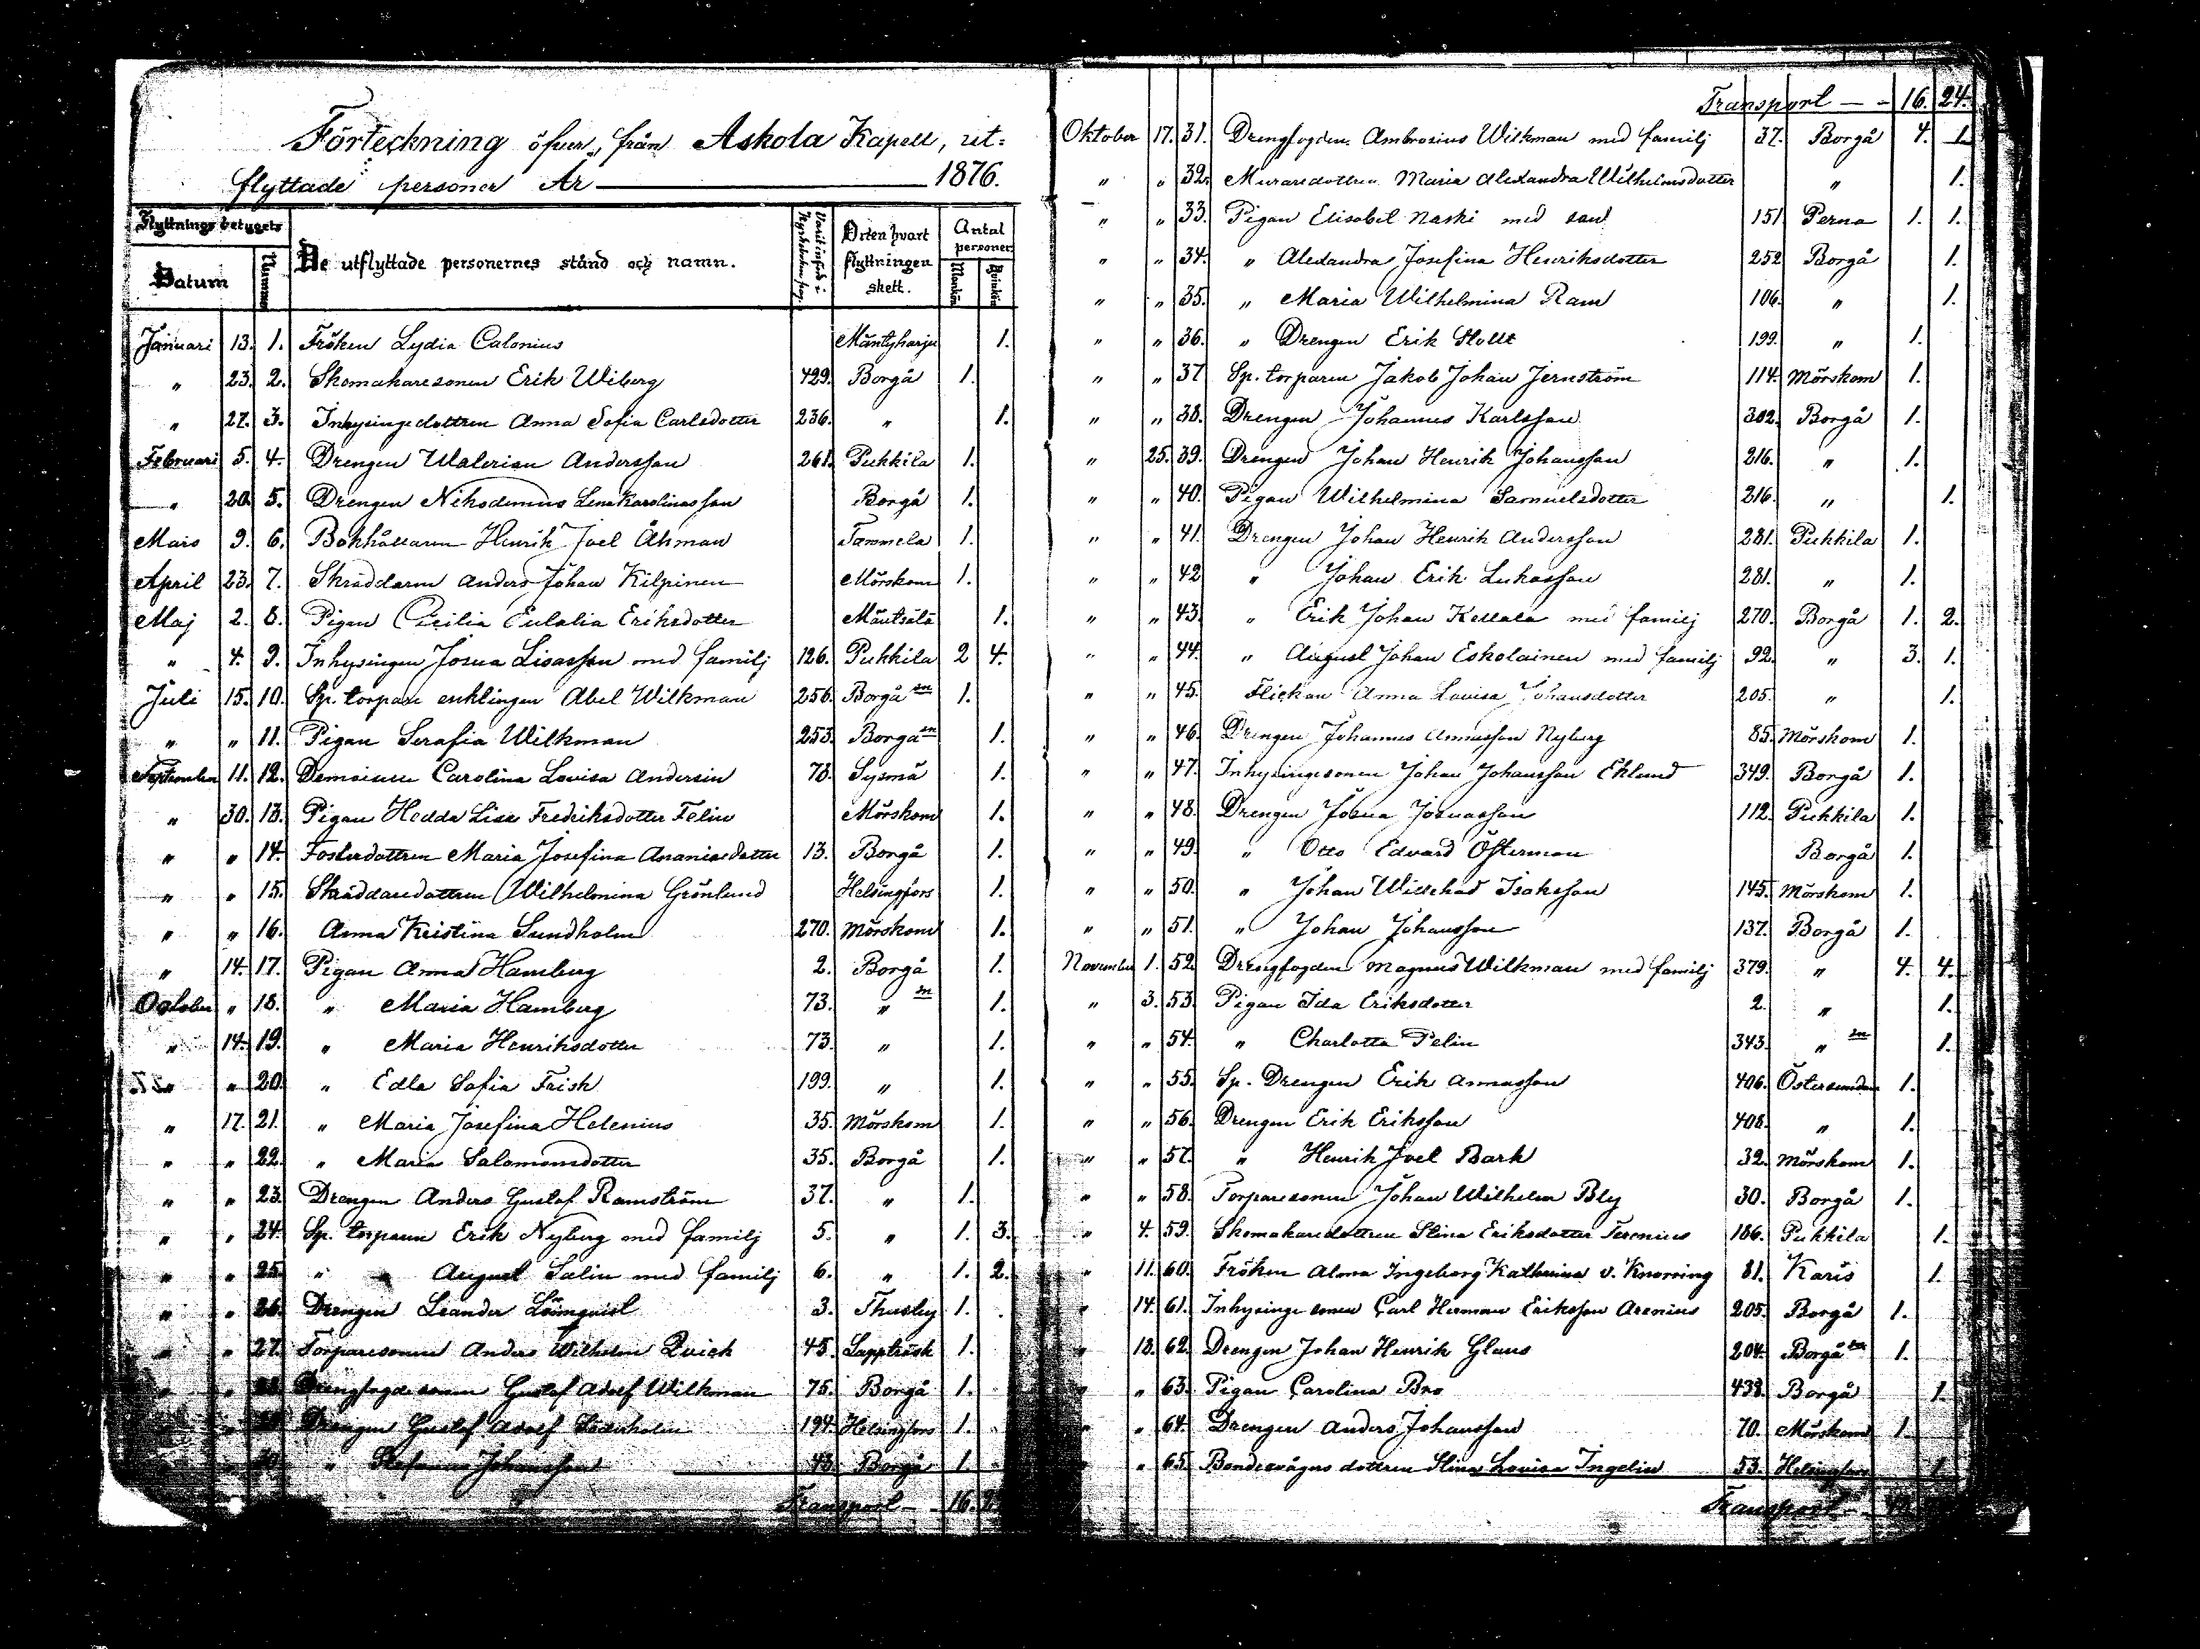 Förteckning öfver, från Askola Kapell, ut=
flyttade personer År 1876.
Flyttnings betygets
Datum
Nummer
De utflyttade personernes stånd och namn.
Orten hvart flyttningen skett.
Antal personer
Mankön
Qvinkön
Januari 13. 1. Fröken Lydia Calonius Mäntyharju 1.
" 23. 2. Skomakaresonen Erik Wiberg 429. Borgå 1.
" 27. 3. Inhysingedottren Anna Sofia Carlsdotter 236. " 1.
Februari 5. 4. Drengen Walerian Andersson 261. Pukkila 1.
" 20. 5. Drengen Nikodemus Lena Karolinasson Borgå 1.
Mars 9. 6. Bokhållaren Henrik Joel Åhman Tammela 1.
April 23. 7. Skräddaren Anders Johan Kilpinen Mörskom 1.
Maj 2. 8. Pigan Cecilia Eulalia Eriksdotter Mäntsälä 1.
" 4. 9. Inhysingen Josua Lisasson med familj 126. Pukkila 2 4.
Juli 15. 10. Sp. torpare enklingen Abel Wilkman 256. Borgå sn 1.
" " 11. Pigan Serafia Wilkman 253. Borgå sn 1.
September 11. 12. Demoisen Carolina Lovisa Andersin 78. Sysmä 1.
" 30. 13. Pigan Hedda Lisa Fredriksdotter Felin Mörskom 1.
" " 14. Fosterdottren Maria Josefina Ananiasdotter 13. Borgå 1.
" " 15. Skräddaredottren Wilhelmina Grönlund Helsingfors 1.
" " 16. Anna Kristina Sundholm 270. Mörskom 1.
" 14. 17. Pigan Anna Hamberg 2. Borgå 1.
October " 18. " Maria Hamberg 73. " sn 1.
" 14. 19. " Maria Henriksdotter 73. " 1.
" " 20. " Edla Sofia Frisk 199. " 1.
" 17. 21. " Maria Josefina Helenius 35. Mörskom 1.
" " 22. " Maria Salomonsdotter 35. Borgå 1.
" " 23. Drengen Anders Gustaf Ramström 37. " 1.
" " 24. Sp. torparen Erik Nyberg med familj 5. " 1. 3.
" " 25. " " August Salin med familj 6. " 1. 2.
" " 26. Drengen Leander Lönnqvist 3. Thusby 1.
" " 27. Torparesonen Anders Wilhelm Qvick 45. Lappträsk 1.
" " 28. Drengfogdesonen Gustaf Adolf Wilkman 75. Borgå 1.
" " 29. Drengen Gustaf Adolf Söderholm 194. Helsingfors 1.
" " 30. " Johansson 43. Borgå 1.
Transport 16. 24.
Transport 16. 24.
Oktober 17. 31. Drengfogden Ambrosius Wilkman med familj 37. Borgå 4. 1.
" " 32. Muraredottren Maria Alexandra Wilhelmsdotter " 1.
" " 33. Pigan Elisabet Naski med son 151 Perna 1. 1.
" " 34. " Alexandra Josefina Henriksdotter 252 Borgå 1.
" " 35. " Maria Wilhelmina Ram 106. " 1.
" " 36. " Drengen Erik Hollt 199. " 1.
" " 37 Sp. torparen Jakob Johan Jernström 114. Mörskom 1.
" " 38. Drengen Johannes Karlsson 302. Borgå 1.
" 25. 39. Drengen Johan Henrik Johansson 216. " 1.
" " 40. Pigan Wilhelmina Samuelsdotter 216. " 1.
" " 41. Drengen Johan Henrik Andersson 281. Pukkila 1.
" " 42 " Johan Erik Lukasson 281. " 1.
" " 43. " Erik Johan Kellala med familj 270. Borgå 1. 2.
" " 44. " August Johan Eskolainen med familj 92. " 3. 1.
" " 45. Flickan Anna Lovisa Johansdotter 205. " 1.
" " 46. Drengen Johannes Annasson Nyberg 85. Mörskom 1.
" " 47. Inhysingesonen Johan Johansson Eklund 349. Borgå 1.
" " 48. Drengen Josua Josuasson 112. Pukkila 1.
" " 49. " Otto Edvard Österman Borgå 1.
" " 50. " Johan Willehad Isaksson 145. Mörskom 1.
" " 51. " Johan Johansson 137. Borgå 1.
November 1. 52. Drengfogden Magnus Wilkman med familj 379. " 4. 4.
" 3. 53. Pigan Ida Eriksdotter 2. " 1.
" " 54. " Charlotta Pelin 343. " sn 1.
" " 55. Sp. Drengen Erik Annasson 406. Östersundom 1.
" " 56. Drengen Erik Eriksson 408. " 1.
" " 57. " Henrik Joel Bark 32. Mörskom 1.
" " 58. Torparesonen Johan Wilhelm Bly 30. Borgå 1.
" 4. 59. Skomakaredottren Stina Eriksdotter Terenius 186. Pukkila 1.
" 11. 60. Fröken Alma Ingeborg Katharina v. Knorring 81. Karis 1.
" 14. 61. Inhysinge sonen Carl Herman Eriksson Arenius 205. Borgå 1.
" 18. 62. Drengen Johan Henrik Glans 204. Borgå sn 1.
" " 63. Pigan Carolina Bro 438. Borgå 1.
" " 64. Drengen Anders Johansson 70. Mörskom 1.
" " 65. Bondesvågers dottren Stina Lovisa Ingelin 53. Helsingfors 1.
Transport